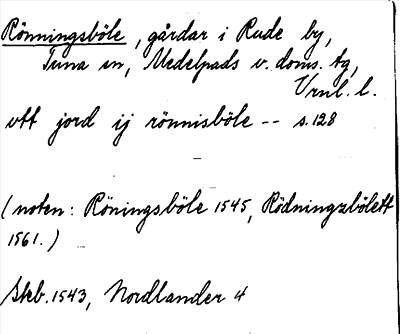 Rönningsböle, gårdar i Rude by,
Tuna sn, Medelpads v. doms. tg,
Vrnl. l.
ott jord ij rönnisböle -- s. 128
(noten: Röningsböle 1545, Rödningzbölett
1561.)
Skb. 1543, Nordlander 4